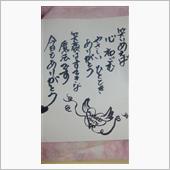 笑いめば
心和む
やさしいひととき
ありがとう
笑顔はすてきな
魔法です
今日もありがとう